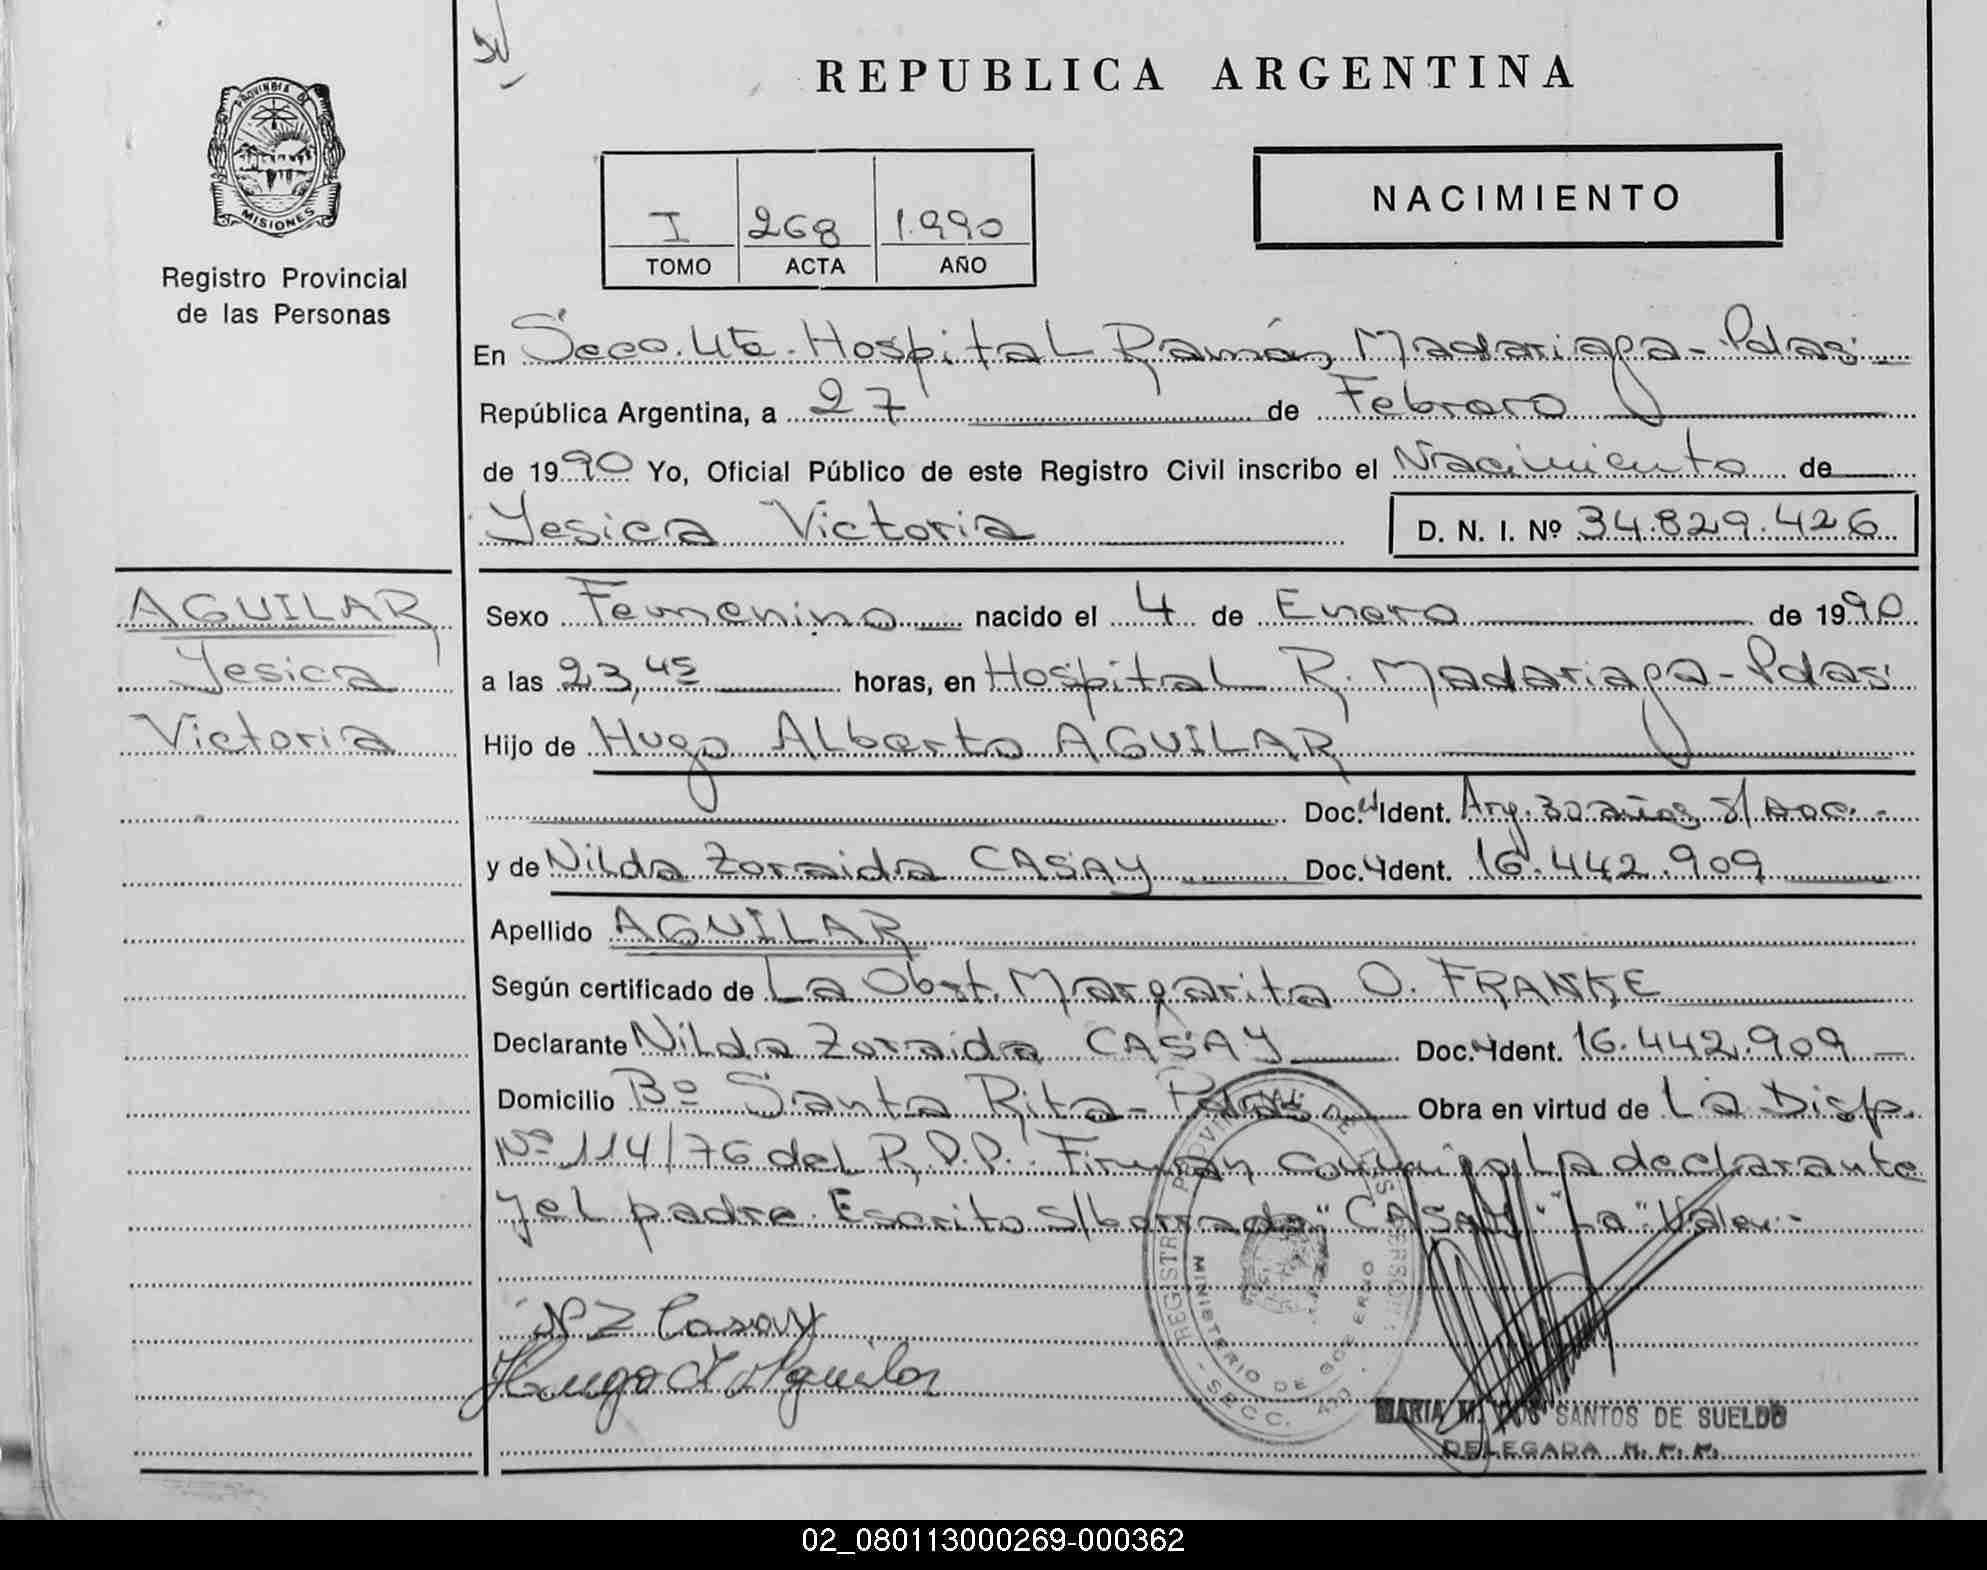 REPUBLICA ARGENTINA
PROVINCIA DE
MISIONES
Registro Provincial
de las Personas
I 268 1.990
TOMO ACTA AÑO
NACIMIENTO
En Secc. 4ta. Hospital Ramón Madariaga - Pdas.
República Argentina, a 27 de Febrero
de 1990 Yo, Oficial Público de este Registro Civil inscribo el Nacimiento de
Yesica Victoria D. N. I. Nº 34.829.426
AGUILAR
Yesica
Victoria
Sexo Femenino nacido el 4 de Enero de 1990
a las 23,45 horas, en Hospital R. Madariaga - Pdas.
Hijo de Hugo Alberto AGUILAR
Doc. Ident. Arg. 30 años s/ Doc.-
y de Nilda Zoraida CASAY Doc. Ident. 16.442.909
Apellido AGUILAR
Según certificado de La Obst. Margarita O. FRANKE
Declarante Nilda Zoraida CASAY Doc. Ident. 16.442.909
Domicilio Bº Santa Rita - Pdas. Obra en virtud de La Disp.
Nº 114/76 del R.P.P. Firman conmigo La declarante
y el padre. Escrito s/borrado "CASAY" "La" Vale.-
N Z Casay
Hugo A Aguilar
REGISTRO PROVINCIAL DE LAS PERSONAS
MINISTERIO DE GOBIERNO
MARIA M. DOS SANTOS DE SUELDO
DELEGADA R. P. P.
02_080113000269-000362